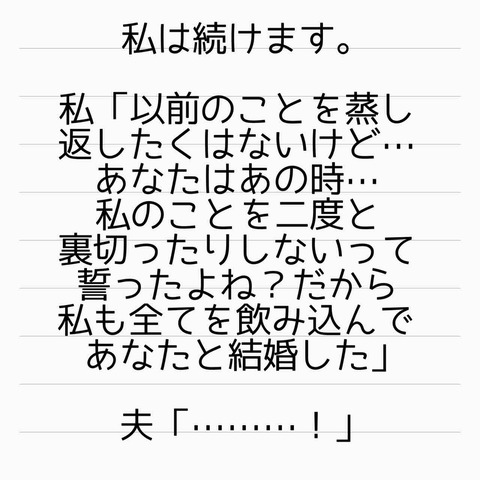 私は続けます。
私「以前のことを蒸し
返したくはないけど…
あなたはあの時…
私のことを二度と
裏切ったりしないって
誓ったよね？だから
私も全てを飲み込んで
あなたと結婚した」
夫「………！」